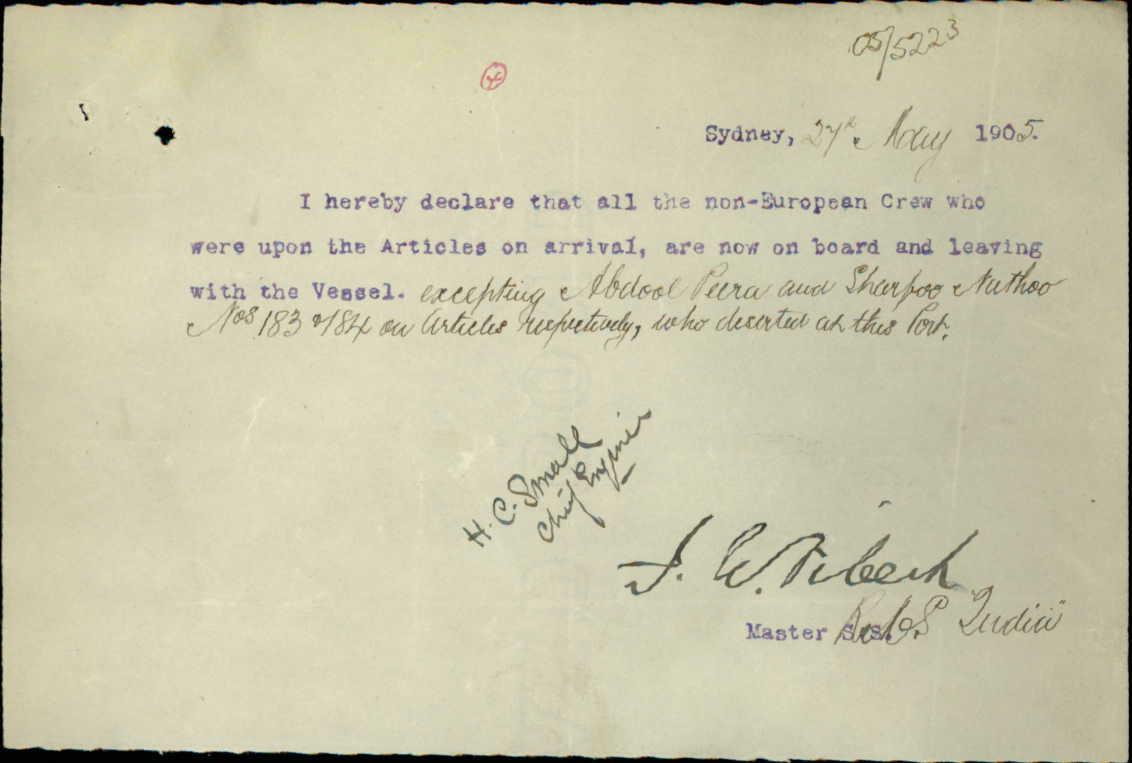 05/5223
Sydney, 27th May 1905.
I hereby declare that all the non-European Crew who
were upon the Articles on arrival, are now on board and leaving
with the Vessel. excepting Abdool Peera and Sharfoo Nuthoo
Nos 183 & 184 on Articles respectively, who deserted at this Port.
H. C. Small
Chief Engineer
W.
Master S.S. "India"